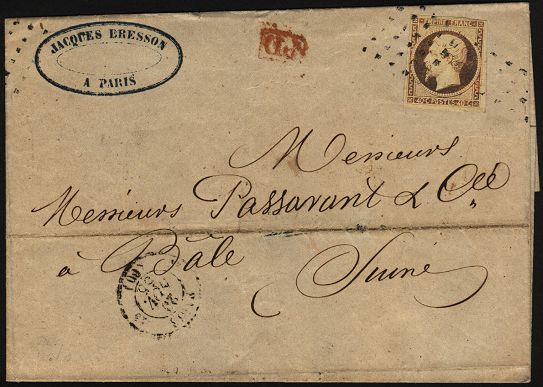 JACQUES BRESSON
A PARIS
PD
EMPIRE FRANC.
40 C. POSTES 40 C.
Messieurs
Messieurs Passavant & Cie
à Bâle Suisse